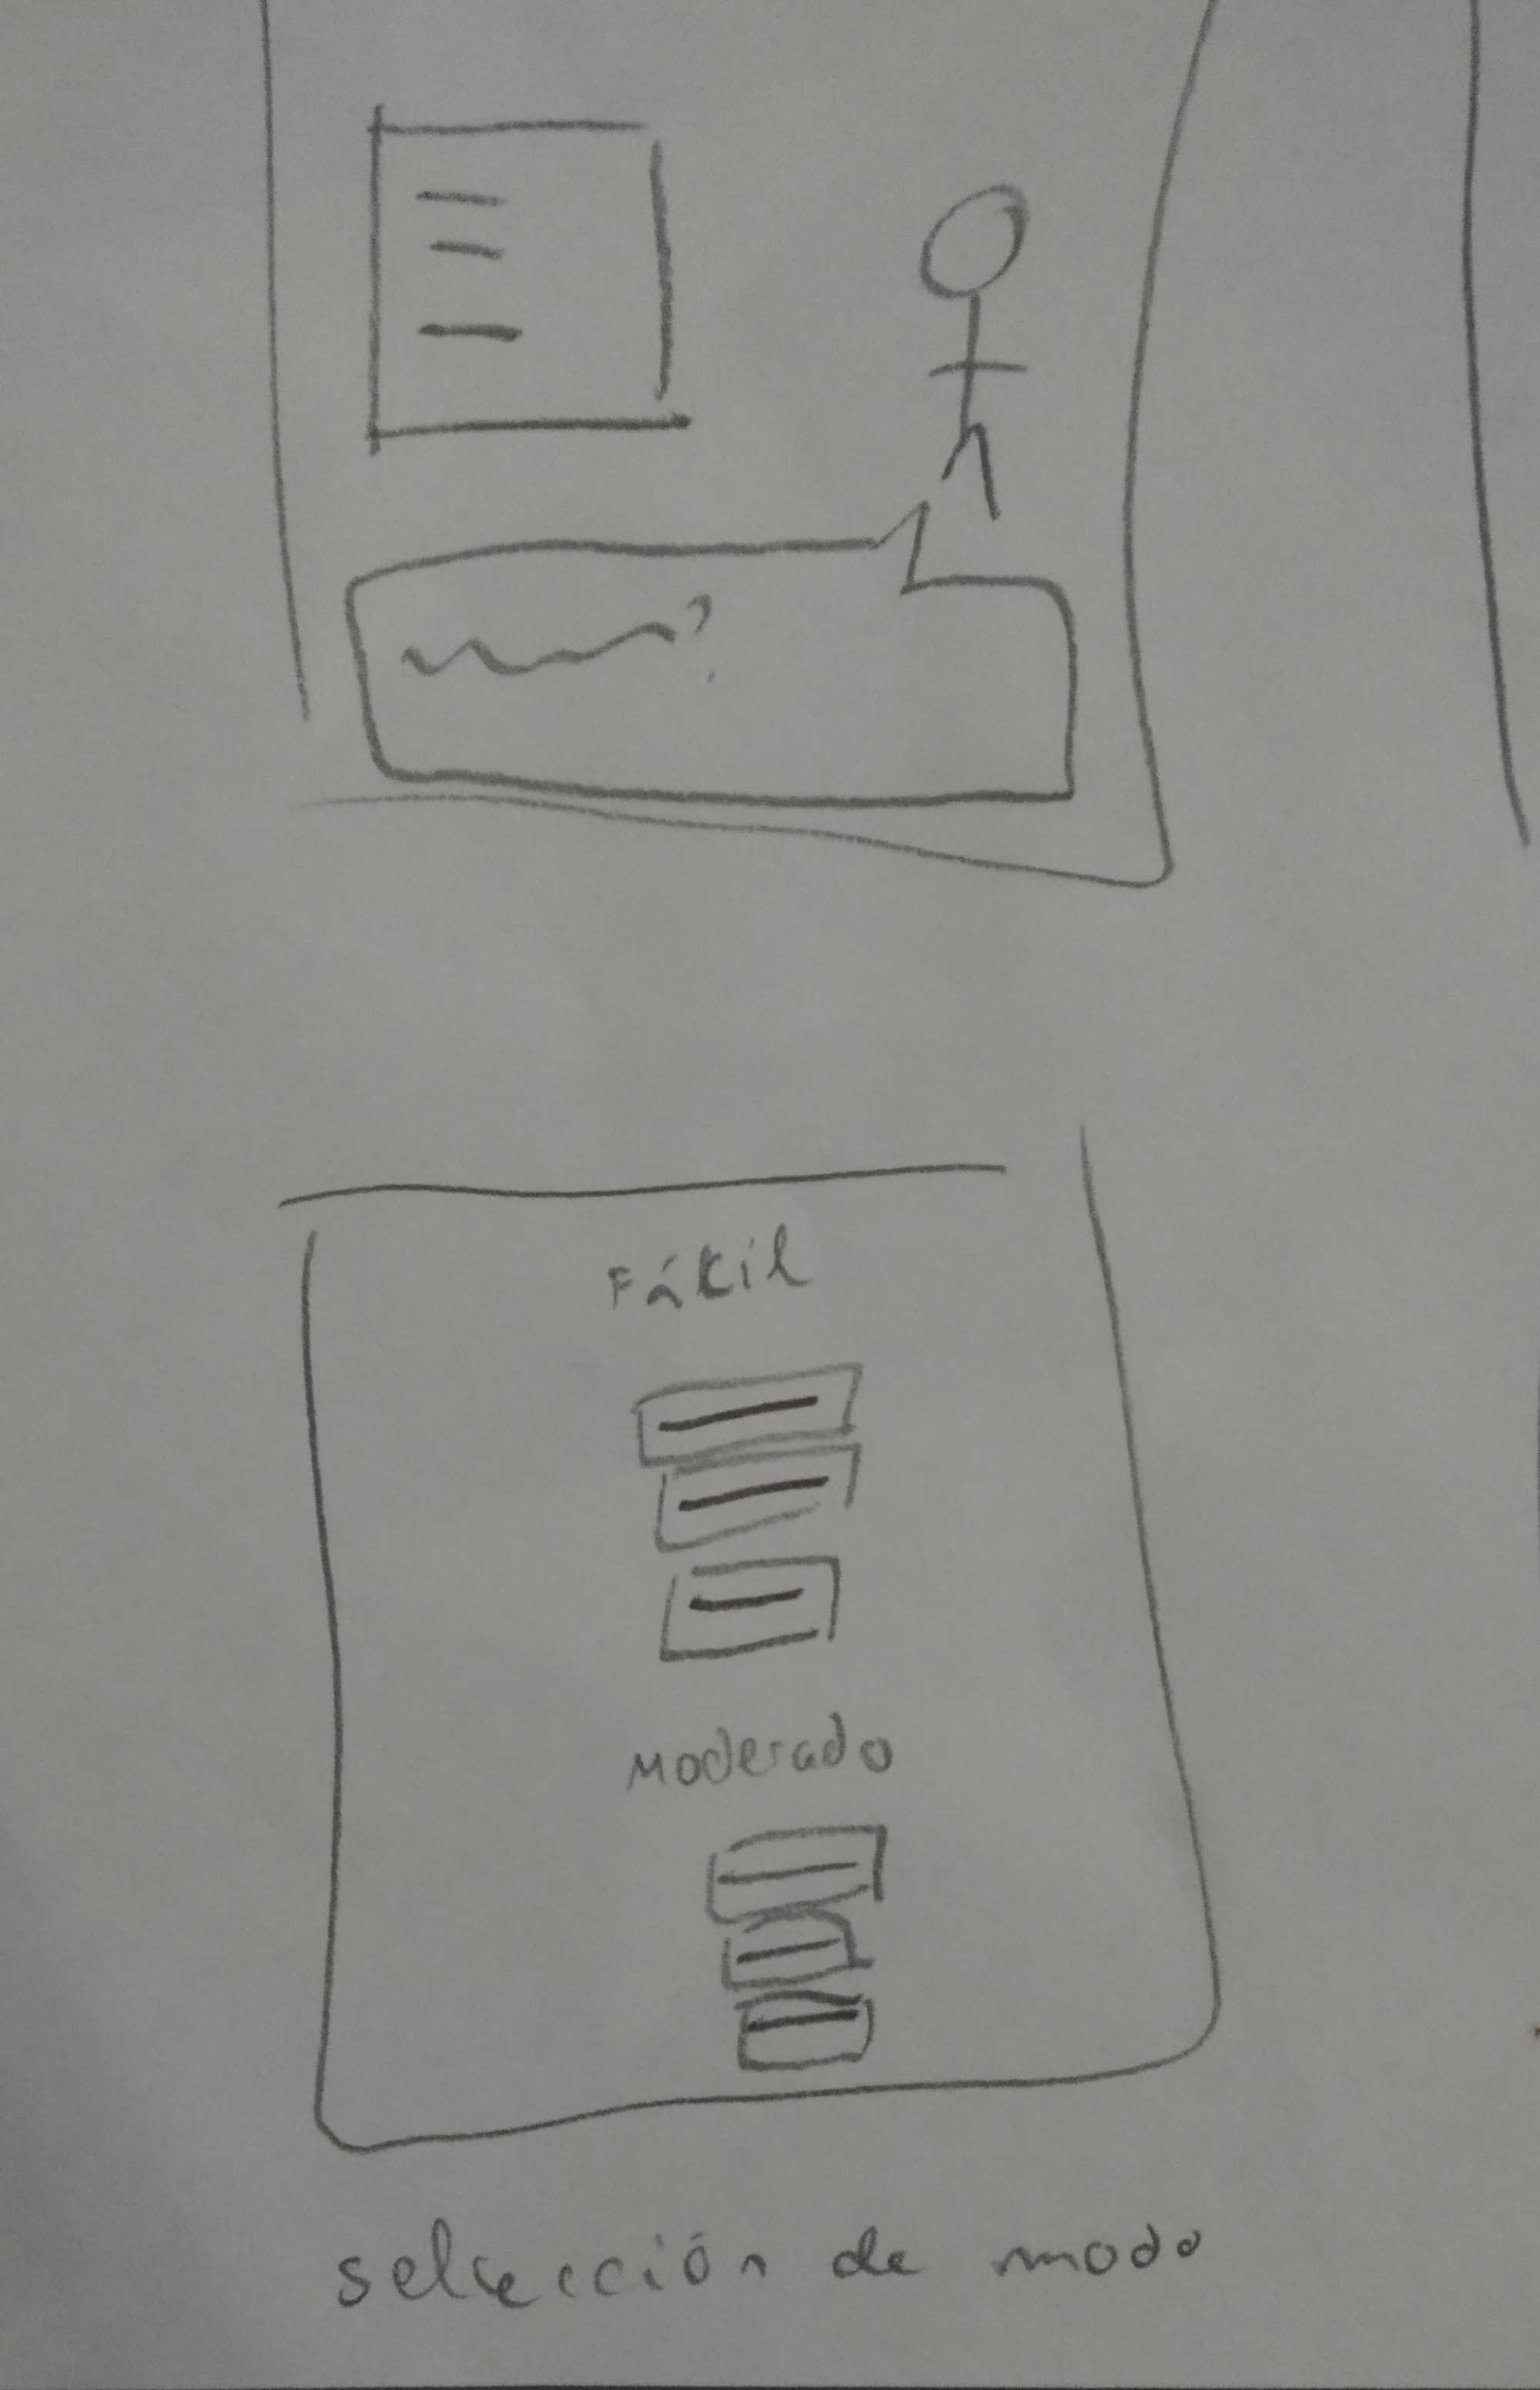 ?
Fákil
Moderado
selección de modo